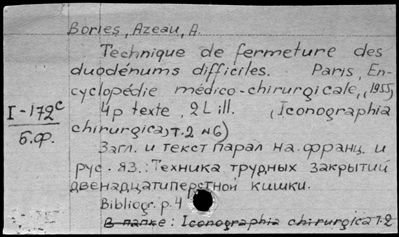 Bories, Azeau, A.
Technique de fermeture des
duodénums difficiles. Paris, En-
cyclopédie médico-chirurgicale, (1955)
I-172c
4p texte, 2 L ill. (Iconographia
б.ф.
chirurgica, т-2 №6)
Загл. и текст парал на франц. и
рус. яз.: Техника трудных закрытий
двенадцатиперстной кишки.
Bibliogr. p. 4
В папке: Iconographia chirurgica т-2